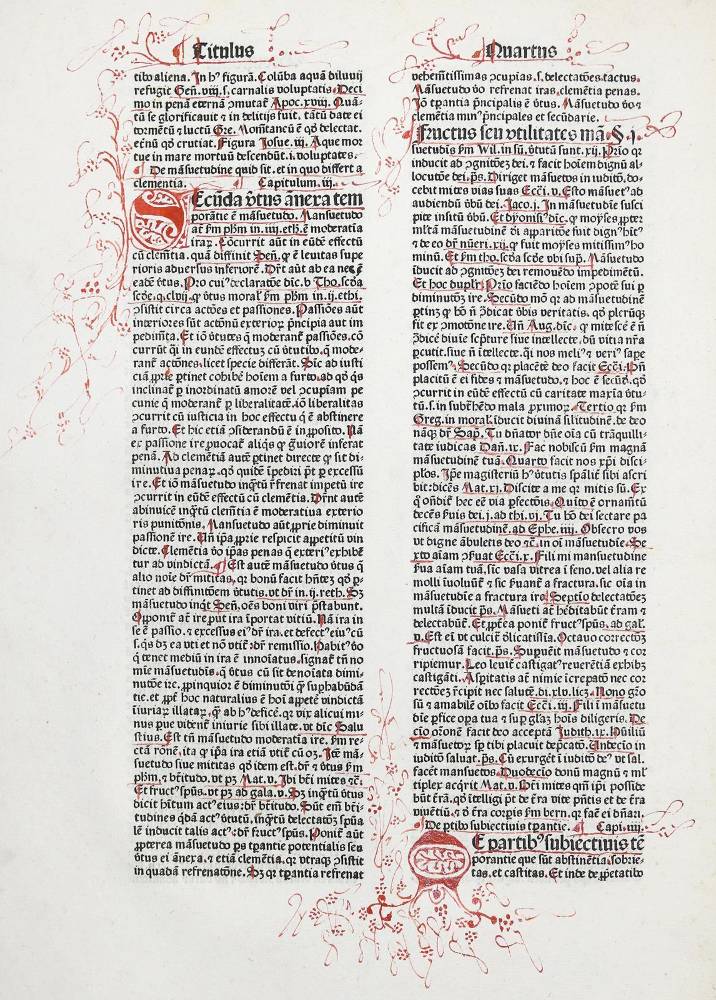 Titulus
tibo aliena. In hꝰ figurā. Colūba aquā diluuij
refugit Gen̄. viij. s. carnalis voluptatis. Deci
mo in penā eternā ꝯmutat̄ Apoc. xviij. Quā-
tū se glorificauit ⁊ in delitijs fuit. tātū date ei
tormētū ⁊ luctū Gre. Momētaneū ē qd̄ delectat.
et̄nū qd̄ cruciat. Figura Josue. iij. Aque mor
tue in mare mortuū descendūt. i. voluptates.
De māsuetudine quid sit. et in quo differt a
clementia. Capitulum. iij.
Ecūda v̄tus ānexa tem
porātie ē māsuetudo. Mansuetudo
at̄ ẜm pħm in. iiij. eth. ē moderatīa
iraꝝ. Cōcurrit aūt in eūdē effectū
cū clemētia. quā diffinit Sen̄. ꝙ ē leuitas supe
rioris aduersus inferiorē. Dr̄t aūt ab ea nec̄ ē
eadē v̄tus. Pro cuiꝰ declaratōe dic̄. b Tho. scd̄a
scd̄e. q. clvij. ꝙ v̄tus moral̄ ẜm pħm in ij. ethi.
ꝯsistit circa actōes et passiones. Passiōes aūt
interiores sūt actōnū exterioꝝ pn̄cipia aut im
pedimēta. Et iō v̄tutes q̄ moderant̄ passiōes. cō
currūt q̄i in eundē effectuꝫ cū v̄tutibꝰ. q̄ mode-
rant̄ actōnes. licet specie differāt. Sic̄ ad iusti
ciā ꝓprie ꝑtinet cohibē hoīem a furto. ad qd̄ q̇s
inclinat̄ ꝑ inordinatū amorē vel ꝯcupiam pe
cunie q̄ moderant̄ ꝑ liberalitatē. iō liberalitas
ꝯcurrit cū iusticia in hoc effectu q̄ ē abstinere
a furto. Et hic etiā ꝯsiderandū ē in ꝓposito. Nā
ex passione ire ꝓuocat̄ aliq̇s ꝙ g̈uiorē inferat
penā. Ad clemētiā autē ꝑtinet directe ꝙ sit di-
minutiua penaꝝ. qd̄ quidē īpediri pt̄ ꝑ excessū
ire. Et iō māsuetudo inqn̄tū r̄frenat impetū ire
ꝯcurrit in eūdē effectū cū clemētia. Drn̄t autē
abinuicē inqn̄tū clemētia ē moderatiua exterio
ris punitōnis. Mansuetudo aūt ꝓprie diminuit
passionē ire. Un̄ ip̄a ꝓprie respicit appetitū vin
dicte. Clemētia v̄o ip̄as penas q̄ exteriꝰ exhibē
tur ad vindictā. Est autē māsuetudo v̄tus q̄
alio noīe dr̄ mititas. ꝙ bonū facit hn̄tes qd̄ ꝑ-
tinet ad diffinitōem v̄tutis. vt dr̄ in. ij. reth. Sꝫ
māsuetudo inqt̄ Sen̄. oēs boni viri pr̄stabunt.
Opponit̄ at̄ ire put ira īportat vitiū. Nā ira in
se ē passio. ⁊ excessus eiꝰ dr̄ ira. et defectꝰ eiꝰ cū
s. q̇s dꝫ ea vti et nō vtit̄ dr̄ remissio. Habitꝰ v̄o
q̄ tenet mediū in ira ē innoīatus. signat̄ tn̄ no
mīe māsuetudīs. ꝙ v̄tus cū sit denoīata dimi-
nutōe irē. ꝓpinquior ē diminutōi q̄ suꝑhabūdā
tie. et ꝓpt̄ hoc naturalius ē hoī appetē vindictā
iniuriaꝝ illataꝝ. q̄ ab hꝰ defic̄e. ꝙ vix alicui mi-
nus ꝑue videnr̄ iniurie sibi illate. vt dic̄ Salu
stius. Est tn̄ māsuetudo moderatīa ire. ẜm re-
ctā ronē. ita ꝙ ip̄a ira etiā vtit̄ cū oꝫ. Itē mā-
suetudo siue mititas qd̄ idem est. dr̄ ⁊ v̄tus ẜm
pħm. ⁊ br̄itudo. vt pꝫ Mat. v. Ibi br̄i mites ⁊c̄.
Et fructꝰ spūs. vt pꝫ ad gala. v. Sꝫ inqn̄tū v̄tus
dicit hītum actꝰ eius: dr̄ br̄itudo. Sūt em̄ br̄i-
tudines qdā actꝰ v̄tutū. inqn̄tū delectatōꝫ spūa
lē inducit talis actꝰ: dr̄ fructꝰ spūs. Ponit̄ aūt
ꝓpterea māsuetudo ps tꝑantie potentialis seu
v̄tus ei ānexa. ⁊ etiā clemētia. ꝙ vtraqꝫ ꝯsistit
in quadā refrenatōne. Sꝫ ꝙ tꝑantia refrenat
Quartus
vehemētissimas ꝯcupias. s. delectatōes tactus.
Māsuetudo v̄o refrenat iras. clemētia penas.
Iō tꝑantia pn̄cipalis ē v̄tus. Māsuetudo v̄o ⁊
clemētia minꝰ pn̄cipales et secūdarie.
Fructus seu vtilitates mā. §. i.
suetudīs ẜm Wil. in sū. v̄tutū sunt. xij. Prīo ꝙ
inducit ad ꝯgnitōeꝫ dei. ⁊ facit hoīem dignū al-
locutōe dei. ps̄. Diriget māsuetos in iuditō. do-
cebit mites vias suas Ecc̄i. v. Esto māsuetꝰ ad
audiendū v̄bū dei. Jaco. j. In māsuetudīe susci
pite insitū v̄bū. Et dyonisiꝰ dic̄. ꝙ moyses ꝓpter
ml̄tā māsuetudinē di apparitōe fuit dignꝰ hītꝰ
⁊ de eo dr̄ nūeri. xij. ꝙ fuit moyses mitissimꝰ ho
minū. Et ẜm tho. scd̄a scd̄e vbi sup̄. Māsuetudo
īducit ad ꝯgnitōeꝫ dei remouēdo īpedimētū.
Et hoc dupl̄r. Prīo faciēdo hoīem ꝯpotē sui ꝑ
diminutōꝫ ire. Secūdo mō ꝙ ad māsuetudinē
ꝑtinꝫ ꝙ hō nō ꝯ̄dicat v̄bis veritatis. qd̄ plerūqꝫ
fit ex ꝯmotōne ire. Un̄ Aug. dic̄. ꝙ mitescē ē nō
ꝯ̄dicē diuīe sc̄pture siue intellecte. dū vitia nr̄a
ꝑcutit. siue nō ītellecte. q̄i nos meliꝰ ⁊ veriꝰ saꝑe
possemꝰ. Secūdo ꝙ placētē deo facit Ecc̄i. j. Bn̄
placitū ē ei fides ⁊ māsuetudo. ⁊ hoc ē secūd. qd̄
ꝯcurrit in eūdē effectū cū caritate maxīa v̄tu-
tū. s. in subt̄hēdo mala ꝓximoꝝ. Tertio ꝙ ẜm
Greg. in moral̄. īducit diuinā sil̄itudinē. de deo
nāqꝫ dr̄ Sap̄. Tu dn̄ator dn̄e oīa cū trāquilli-
tate iudicas Dan̄. ix. Fac nobiscū ẜm magnā
māsuetudinē tuā. Quarto facit nos xp̄i disci-
plos. Ip̄e magisteriū hꝰ v̄tutis spālit̄ sibi ascri
bit: dicēs Mat. xi. Discite a me qꝛ mitis sū. Ex
q̊ oñdit̄ hec eē via ꝑfectōis. Quīto ē ornamētū
decēs ẜuis dei. j. ad thi. vi. Tu hō dei sectare pa
cificā māsuetudinē. ad Ephe. iiij. Obsecro vos
vt digne ābuletis deo ⁊c̄. in oī māsuetudīe. Se
xto aīam ꝯẜuat Ecc̄i. x. Fili mi mansuetudine
ẜua aīam tuā. sic̄ vasa vitrea ī feno. vel alia re
molli īuoluūt̄ ⁊ sic ẜuant̄ a fractura. sic oīa in
māsuetudīe a fractura irē. Septīo delectatōeꝫ
multā īducit ps̄. Māsueti at̄ hēditabūt t̄ram ⁊
delectabūt̄. Et ꝓpt̄ea ponit̄ fructꝰ spūs. ad gal̄.
v. Est ei vt culcit̄ dlicatissīa. Octauo correctōꝫ
fructuosā facit. ps̄. Supuēit māsuetudo ⁊ cor
ripiemur. Leo leuit̄ castigatꝰ reuerētiā exhibꝫ
castigāti. Asꝑitatis at̄ nimie īcrepatō nec cor
rectōeꝫ r̄cipit nec salutē. di. xlv. licꝫ. Nono grō
sū ⁊ amabilē oībꝰ facit Ecc̄i. iij. Fili ī māsuetu
dīe ꝑfice oꝑa tua ⁊ suꝑ gl̄aꝫ hoīs diligeris. De
cīo oōonē facit deo acceptā Judith. ix. Hūiliū
⁊ māsuetoꝝ sꝑ tibi placuit dep̄catō. Undecīo in
iuditō saluat. ps̄. Cū exurgēt ī iuditō deꝰ vt sal.
facēt mansuetos. Duodecīo donū magnū ⁊ ml̄-
tiplex acq̄rit Mat. v. Br̄i mites qm̄ ip̄i posside
būt t̄rā. qd̄ ītelligi pt̄ de t̄ra vite pn̄tis et de t̄ra
viuētiū. ⁊ d̄ t̄ra corpis ẜm bern. ꝙ sat̄ ei dn̄ari.
De ptibꝰ subiectiuis tꝑantie. Capi. iiij.
E partibꝰ subiectiuis tē
porantie que sūt abstinētia. sobrie-
tas. et castitas. Et inde de ꝓprietatibꝰ